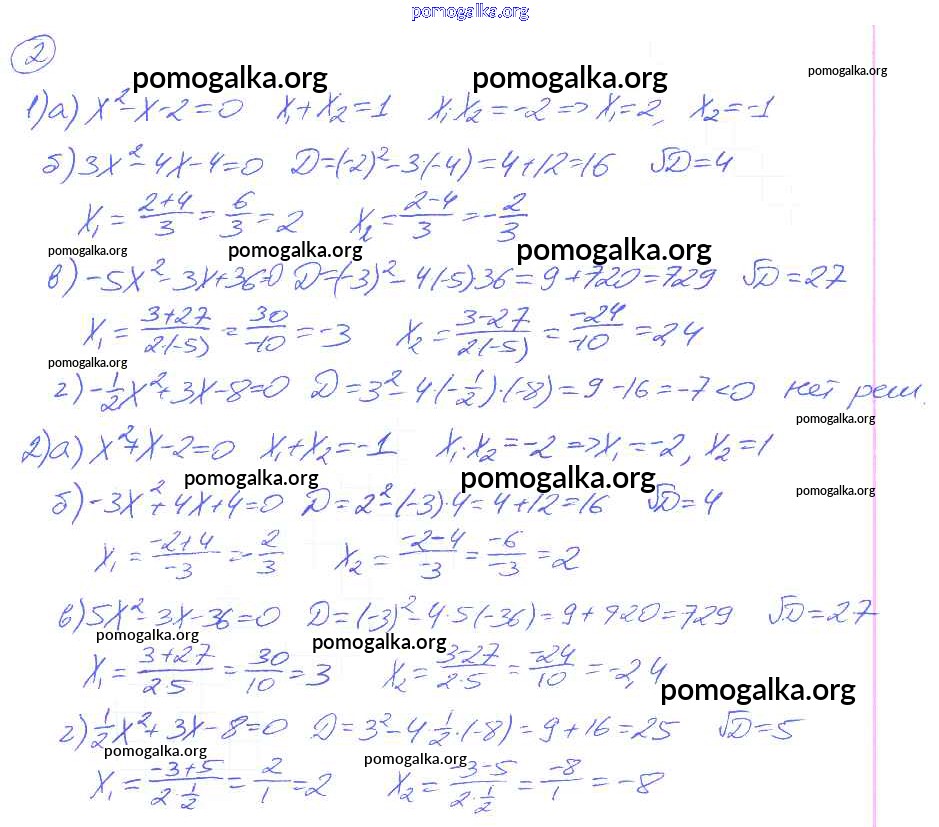 pomogalka.org
2
pomogalka.org pomogalka.org pomogalka.org
1) а) x² - x - 2 = 0 x₁ + x₂ = 1 x₁·x₂ = -2 => x₁ = 2, x₂ = -1
б) 3x² - 4x - 4 = 0 D = (-2)² - 3(-4) = 4 + 12 = 16 √D = 4
x₁ = (2+4)/3 = 6/3 = 2 x₂ = (2-4)/3 = -2/3
pomogalka.org pomogalka.org pomogalka.org
в) -5x² - 3x + 36 = 0 D = (-3)² - 4(-5)36 = 9 + 720 = 729 √D = 27
x₁ = (3+27)/(2(-5)) = 30/(-10) = -3 x₂ = (3-27)/(2(-5)) = (-24)/(-10) = 2,4
pomogalka.org
г) -1/2x² + 3x - 8 = 0 D = 3² - 4(-1/2)·(-8) = 9 - 16 = -7 < 0 нет реш.
pomogalka.org
2) а) x² + x - 2 = 0 x₁ + x₂ = -1 x₁·x₂ = -2 => x₁ = -2, x₂ = 1
pomogalka.org pomogalka.org pomogalka.org
б) -3x² + 4x + 4 = 0 D = 2² - (-3)·4 = 4 + 12 = 16 √D = 4
x₁ = (-2+4)/(-3) = -2/3 x₂ = (-2-4)/(-3) = (-6)/(-3) = 2
в) 5x² - 3x - 36 = 0 D = (-3)² - 4·5(-36) = 9 + 720 = 729 √D = 27
pomogalka.org pomogalka.org
x₁ = (3+27)/(2·5) = 30/10 = 3 x₂ = (3-27)/(2·5) = (-24)/10 = -2,4
pomogalka.org
г) 1/2x² + 3x - 8 = 0 D = 3² - 4·1/2·(-8) = 9 + 16 = 25 √D = 5
pomogalka.org pomogalka.org
x₁ = (-3+5)/(2·1/2) = 2/1 = 2 x₂ = (-3-5)/(2·1/2) = (-8)/1 = -8